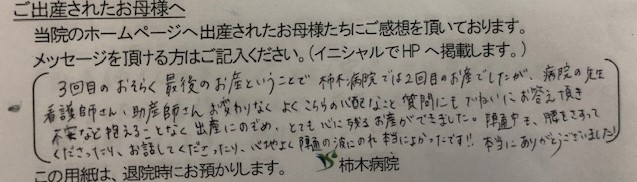 ご出産されたお母様へ
当院のホームページへ出産されたお母様たちにご感想を頂いております。
メッセージを頂ける方はご記入ください。(イニシャルでHPへ掲載します。)
3回目のおそらく最後のお産ということで柿木病院では2回目のお産でしたが、病院の先生
看護師さん・助産師さんお変わりなくよくこちらの心配なこと質問にもていねいにお答え頂き
不安など抱えることなく出産にのぞめ、とても心に残るお産ができました。陣痛中も、腰をさすって
くださったり、お話してくださったり、心地よく陣痛の波にのれ本当によかったです!! 本当にありがとうございました!
この用紙は、退院時にお預かりします。 柿木病院